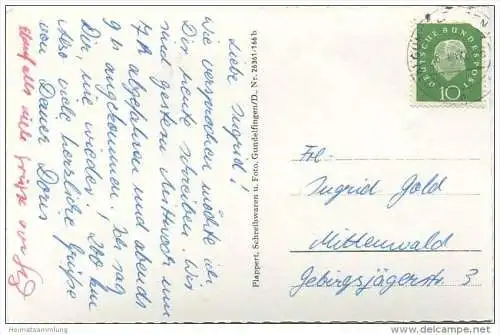 Liebe Ingrid!
Wie versprochen möchte ich
Dir heute schreiben. Wir
sind gestern Mittwoch um
7h abgefahren und abends
9h angekommen,
Dir, nie wieder! 200 km
Also viele herzliche Grüße
von Deiner Doris
ebenfalls viele Grüße
Plappert, Schreibwaren u. Foto, Gundelfingen/D., Nr. 26361-166 b
DEUTSCHE BUNDESPOST
10
Frl.
Ingrid Gold
Mittenwald
Gebirgsjägerstr. 3
Heimatsammlung